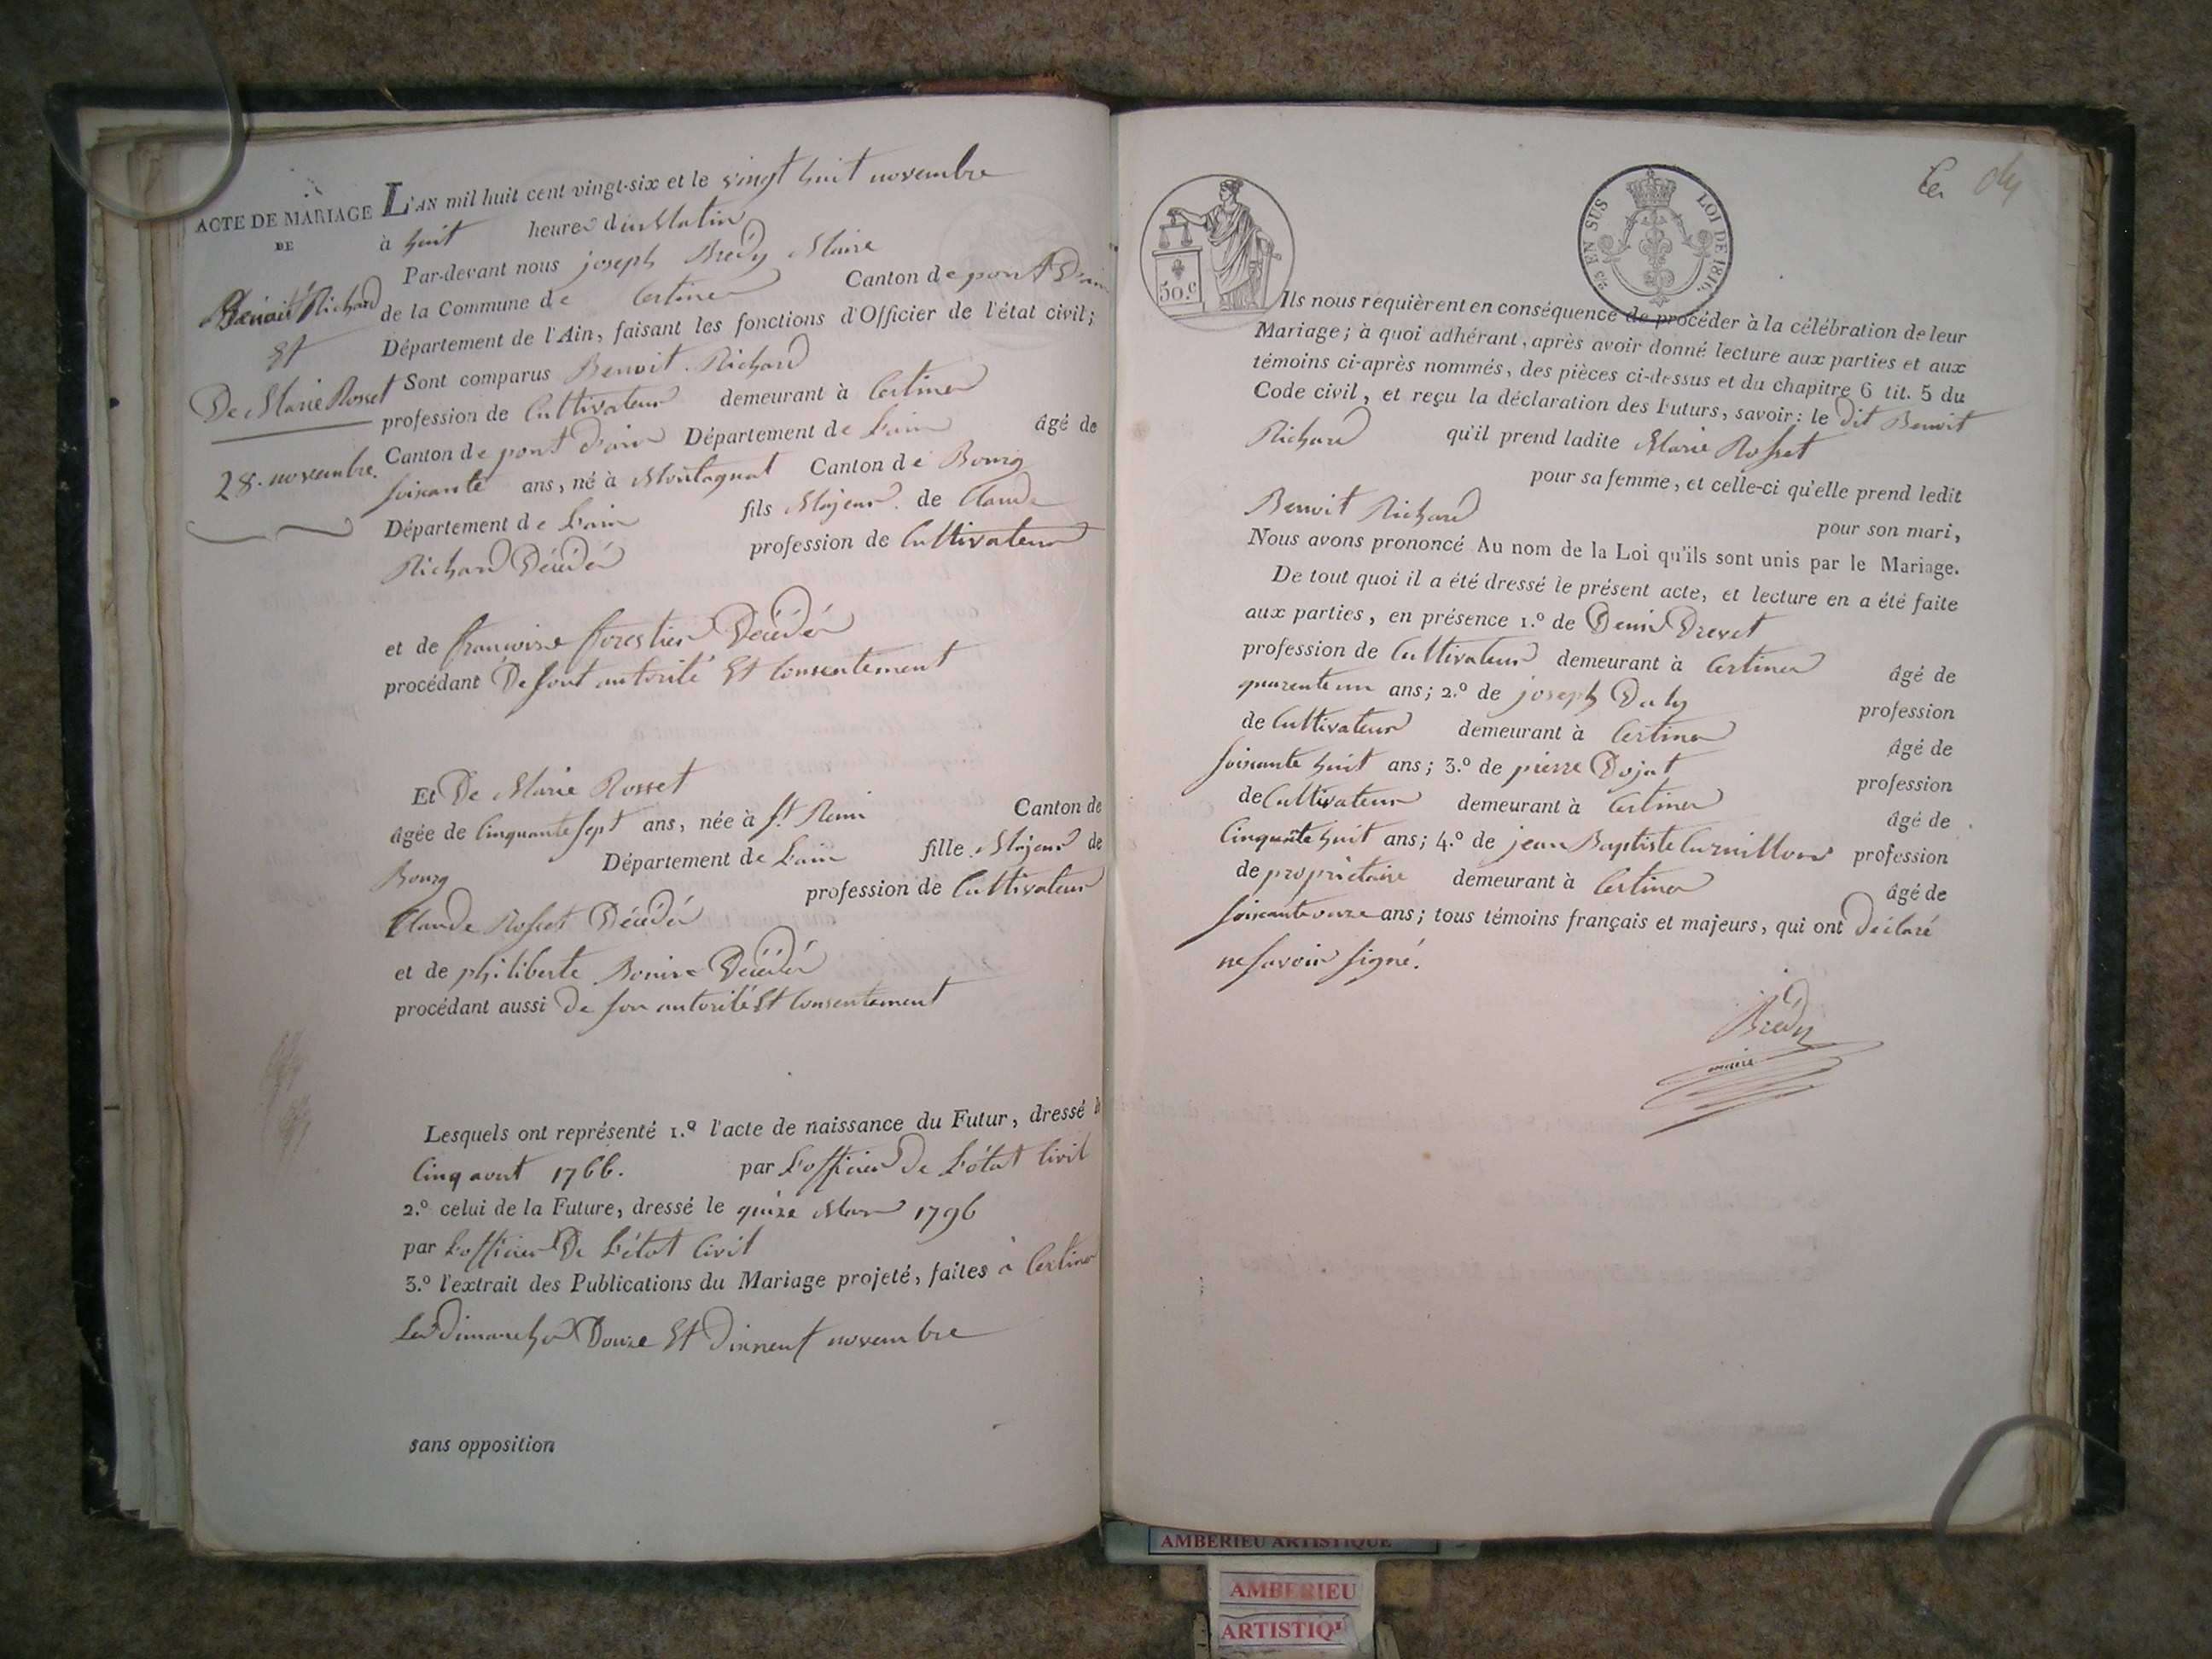 ACTE DE MARIAGE
DE
Benoit Richard
Et
De Marie Rosset
28. novembre.
L'AN mil huit cent vingt-six et le vingt huit novembre
à huit heures du Matin
Par-devant nous joseph Bredy Maire
de la Commune de Certines Canton de pont D'ain
Département de l'Ain, faisant les fonctions d'Officier de l'état civil;
Sont comparus Benoit Richard
profession de Cultivateur demeurant à Certines
Canton de pont D'ain Département de L'ain âgé de
soixante ans, né à Montagnat Canton de Bourg
Département de L'ain fils Majeur de Claude
Richard Décédé profession de Cultivateur
et de françoise forestier Décédé
procédant De sont autorité Et Consentement
Et De Marie Rosset
âgée de Cinquante sept ans, née à St. Remi Canton de
Bourg Département de L'ain fille Majeur de
Claude Rosset Décédé profession de Cultivateur
et de philiberte Décédé
procédant aussi De son autorité Et Consentement
Lesquels ont représenté 1.º l'acte de naissance du Futur, dressé le
Cinq aout 1766. par L'officier De L'état Civil
2.º celui de la Future, dressé le quize Mars 1796
par L'officier De L'état Civil
3.º l'extrait des Publications du Mariage projeté, faites à Certines
Les Dimanches Douze Et Dixneuf novembre
sans opposition
50.c
25 EN SUS LOI DE 1816.
Ils nous requièrent en conséquence de procéder à la célébration de leur
Mariage; à quoi adhérant, après avoir donné lecture aux parties et aux
témoins ci-après nommés, des pièces ci-dessus et du chapitre 6 tit. 5 du
Code civil, et reçu la déclaration des Futurs, savoir: le dit Benoit
Richard qu'il prend ladite Marie Rosset
pour sa femme, et celle-ci qu'elle prend ledit
Benoit Richard pour son mari,
Nous avons prononcé Au nom de la Loi qu'ils sont unis par le Mariage.
De tout quoi il a été dressé le présent acte, et lecture en a été faite
aux parties, en présence 1.º de Denis Drevet
profession de Cultivateur demeurant à Certines âgé de
quarente un ans; 2.º de joseph Duty profession
de Cultivateur demeurant à Certines âgé de
soixante huit ans; 3.º de pierre Dojat profession
de Cultivateur demeurant à Certines âgé de
Cinquante huit ans; 4.º de jean Baptiste Curnillon profession
de propriétaire demeurant à Certines âgé de
soixante onze ans; tous témoins français et majeurs, qui ont Déclaré
ne savoir signé.
Bredy
maire
AMBERIEU ARTISTIQUE
AMBERIEU
ARTISTIQU